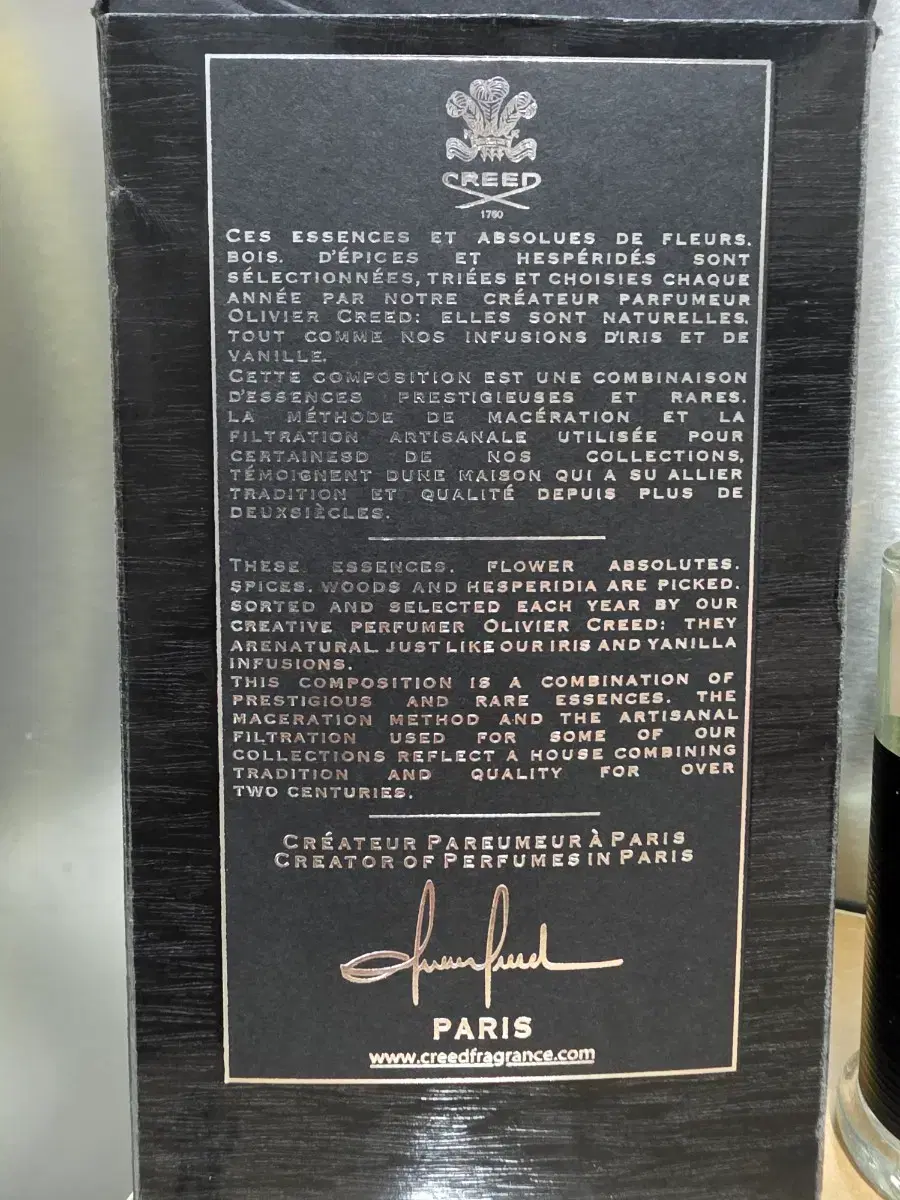 CREED
1760
CES ESSENCES ET ABSOLUES DE FLEURS.
BOIS. D'ÉPICES ET HESPÉRIDÉS SONT
SÉLECTIONNÉES, TRIÉES ET CHOISIES CHAQUE
ANNÉE PAR NOTRE CRÉATEUR PARFUMEUR
OLIVIER CREED: ELLES SONT NATURELLES.
TOUT COMME NOS INFUSIONS D'IRIS ET DE
VANILLE.
CETTE COMPOSITION EST UNE COMBINAISON
D'ESSENCES PRESTIGIEUSES ET RARES.
LA MÉTHODE DE MACÉRATION ET LA
FILTRATION ARTISANALE UTILISÉE POUR
CERTAINESD DE NOS COLLECTIONS,
TÉMOIGNENT DUNE MAISON QUI A SU ALLIER
TRADITION ET QUALITÉ DEPUIS PLUS DE
DEUXSIÈCLES.
THESE ESSENCES. FLOWER ABSOLUTES.
SPICES. WOODS AND HESPERIDIA ARE PICKED.
SORTED AND SELECTED EACH YEAR BY OUR
CREATIVE PERFUMER OLIVIER CREED: THEY
ARENATURAL. JUST LIKE OUR IRIS AND YANILLA
INFUSIONS.
THIS COMPOSITION IS A COMBINATION OF
PRESTIGIOUS AND RARE ESSENCES. THE
MACERATION METHOD AND THE ARTISANAL
FILTRATION USED FOR SOME OF OUR
COLLECTIONS REFLECT A HOUSE COMBINING
TRADITION AND QUALITY FOR OVER
TWO CENTURIES.
CRÉATEUR PAREUMEUR À PARIS
CREATOR OF PERFUMES IN PARIS
PARIS
www.creedfragrance.com